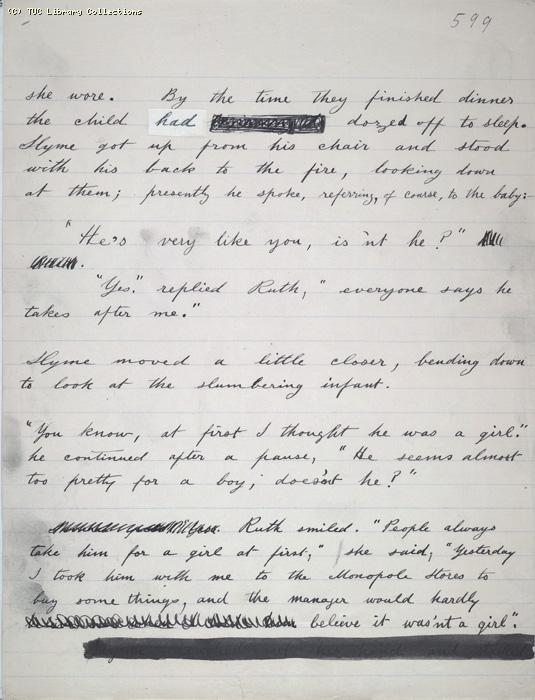 (C) TUC Library Collections
599
she wore. By the time they finished dinner
the child had dozed off to sleep.
Slyme got up from his chair and stood
with his back to the fire, looking down
at them; presently he spoke, referring, of course, to the baby:
"He's very like you, is'nt he?"
"Yes." replied Ruth, "everyone says he
takes after me."
Slyme moved a little closer, bending down
to look at the slumbering infant.
"You know, at first I thought he was a girl."
he continued after a pause, "He seems almost
too pretty for a boy, does'nt he?"
Ruth smiled. "People always
take him for a girl at first," she said, "Yesterday
I took him with me to the Monopole Stores to
buy some things, and the manager would hardly
believe it was'nt a girl".